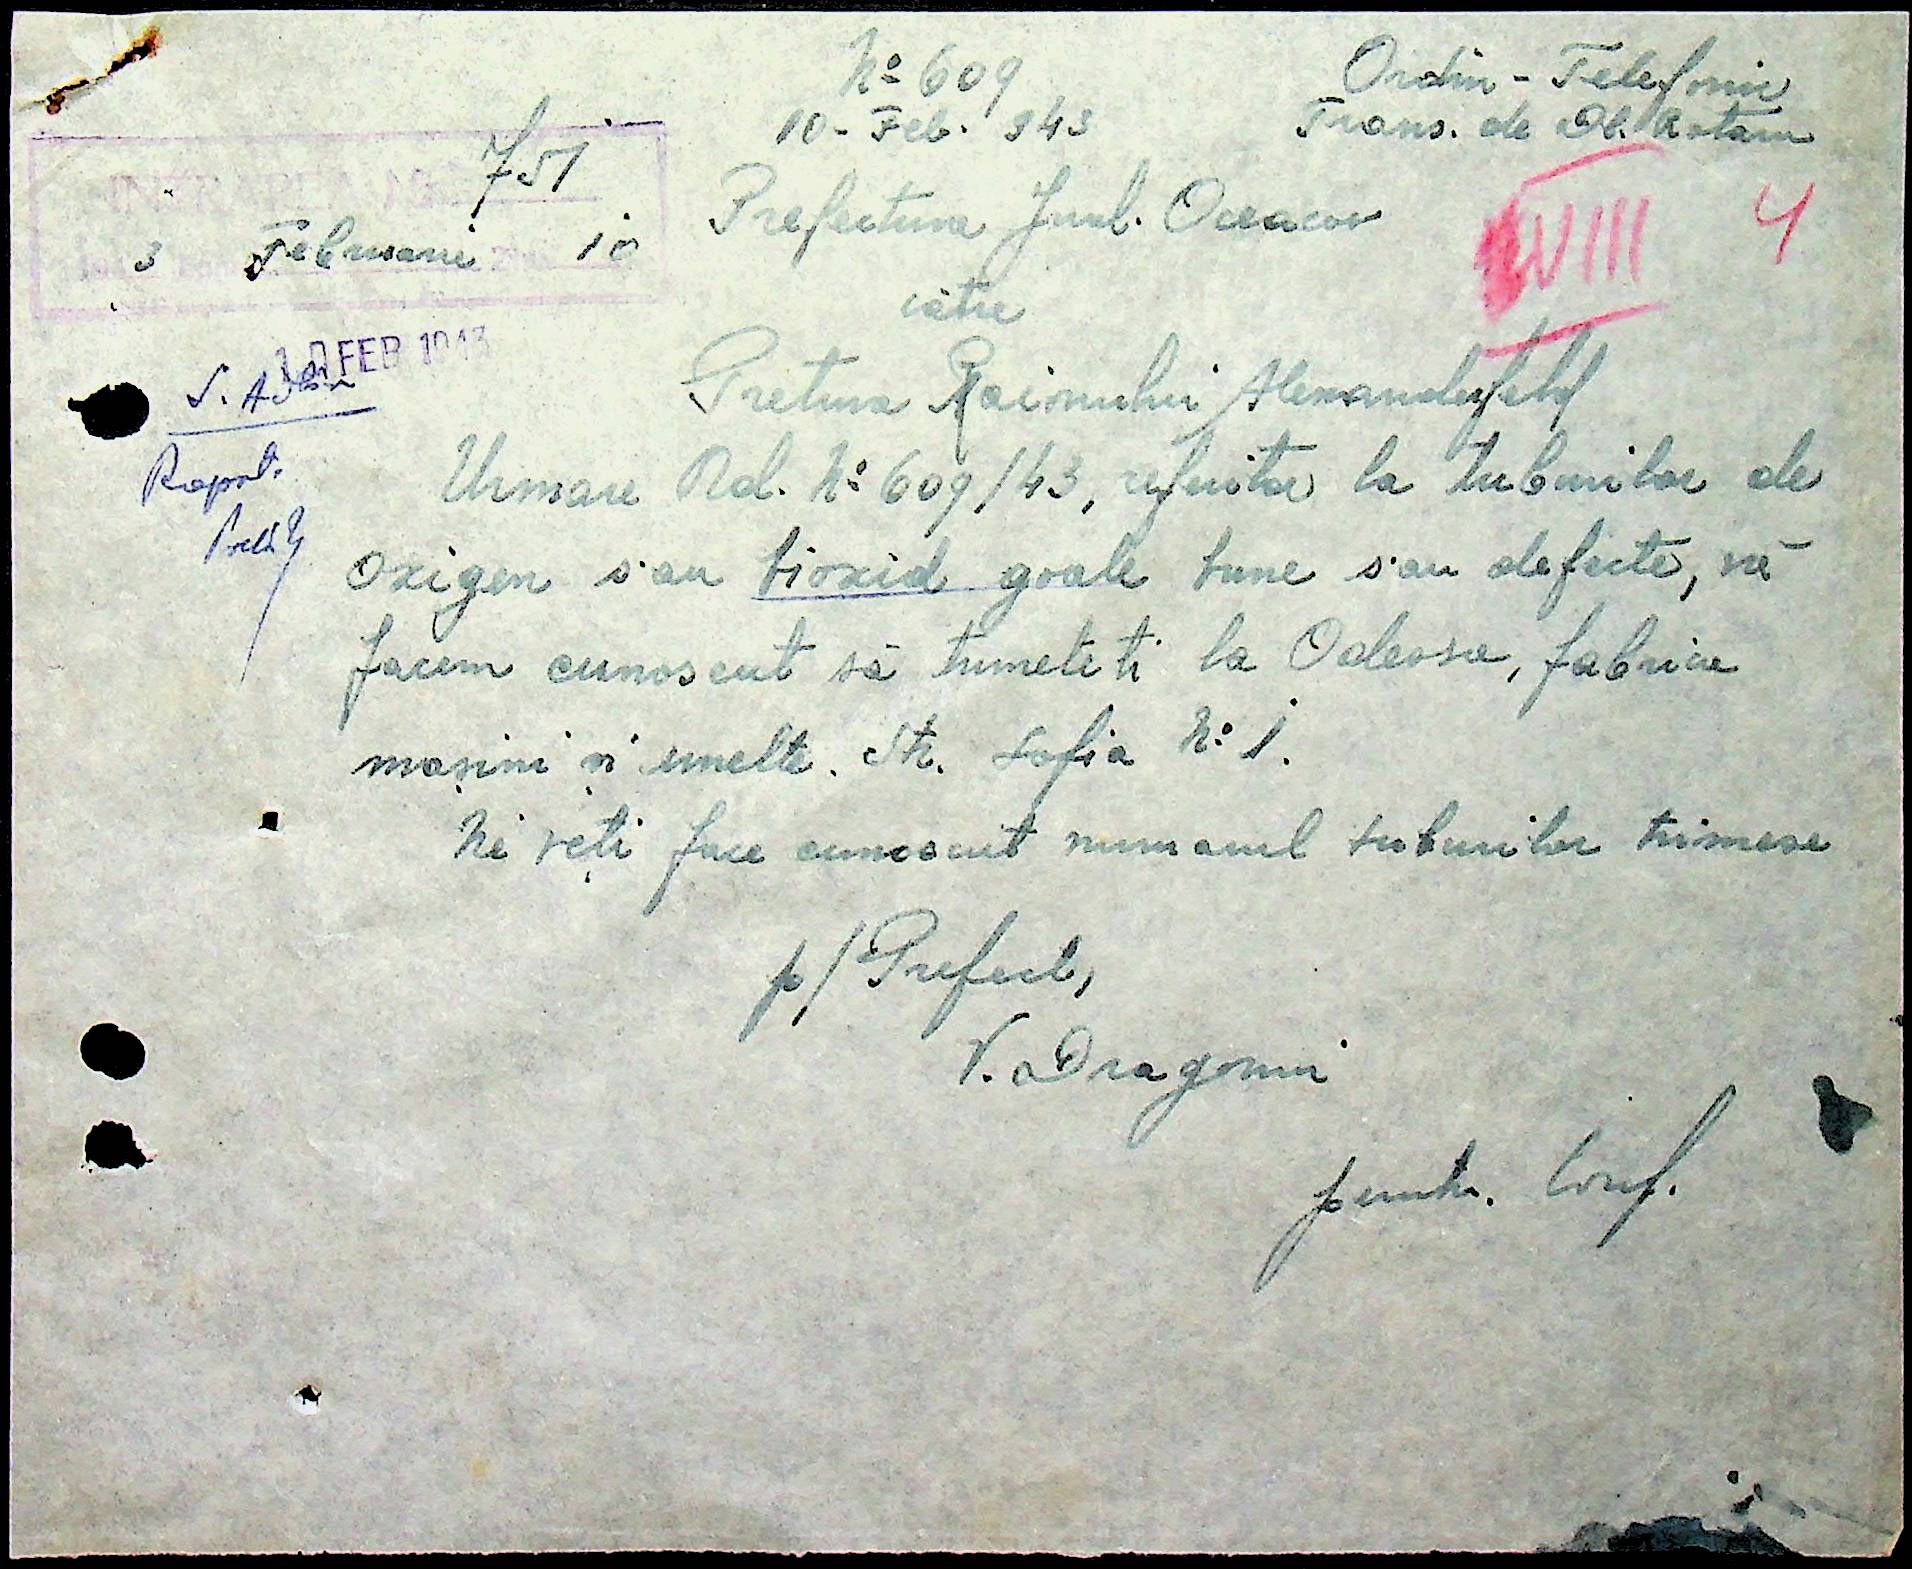 No 609
10 - Feb. 943
Ordin - Telefonic
Trans. de Dl.
751
3 Februarie 10
10 FEB 1943
Prefectura Jud. Oceacov
către
XVIII
4
Pretura Raionului Alexanderfeld
S. Adm
Raport.
Urmare Od. No 609/43, referitor la tuburilor de
oxigen sau bioxid goale bune sau defecte, vă
facem cunoscut să trimeteti la Odessa, fabrica
mașini și unelte. Str. Sofia No 1.
Ni veți face cunoscut numarul tuburilor trimese
p/ Prefect,
V. Dragomir
pentr. Conf.